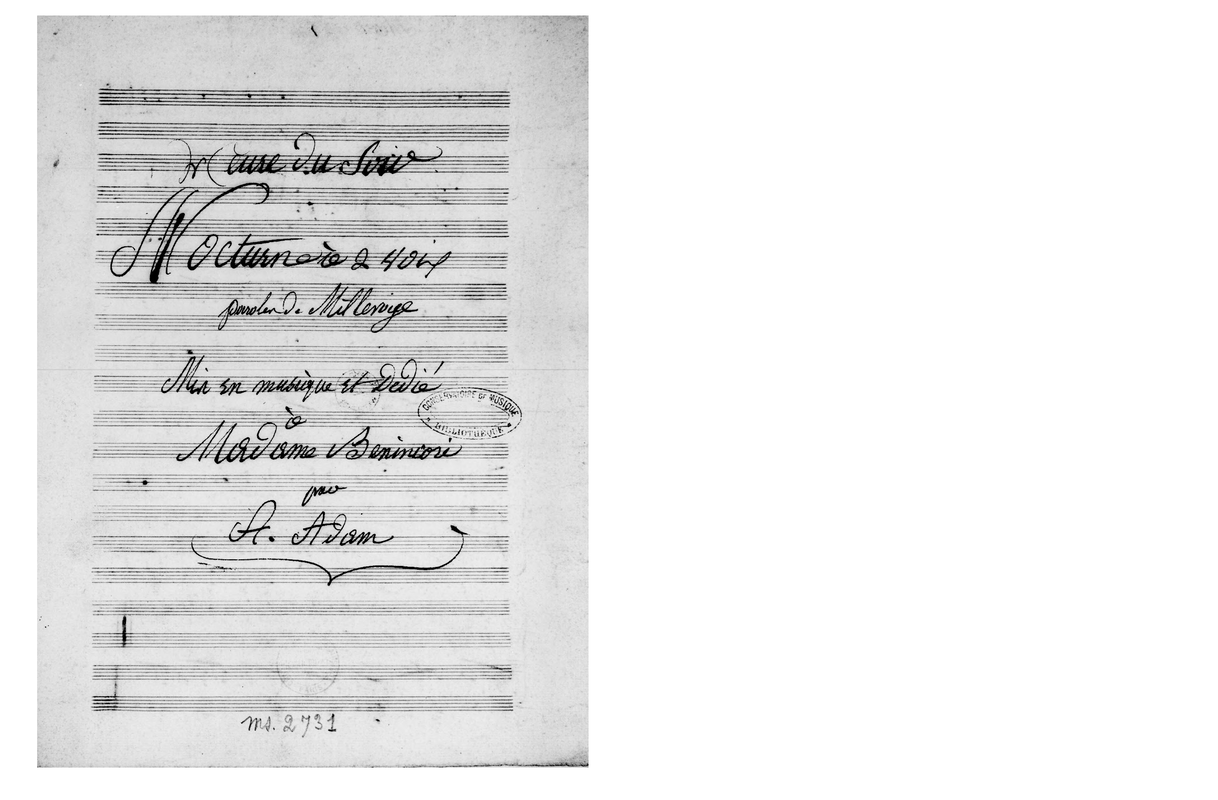 Heure du Soir
Nocturne à 2 voix
paroles de Millevoye
Mis en musique et Dedié
à
Madame Benincori
par
A. Adam
CONSERVATOIRE DE MUSIQUE
BIBLIOTHÈQUE
ms. 2731